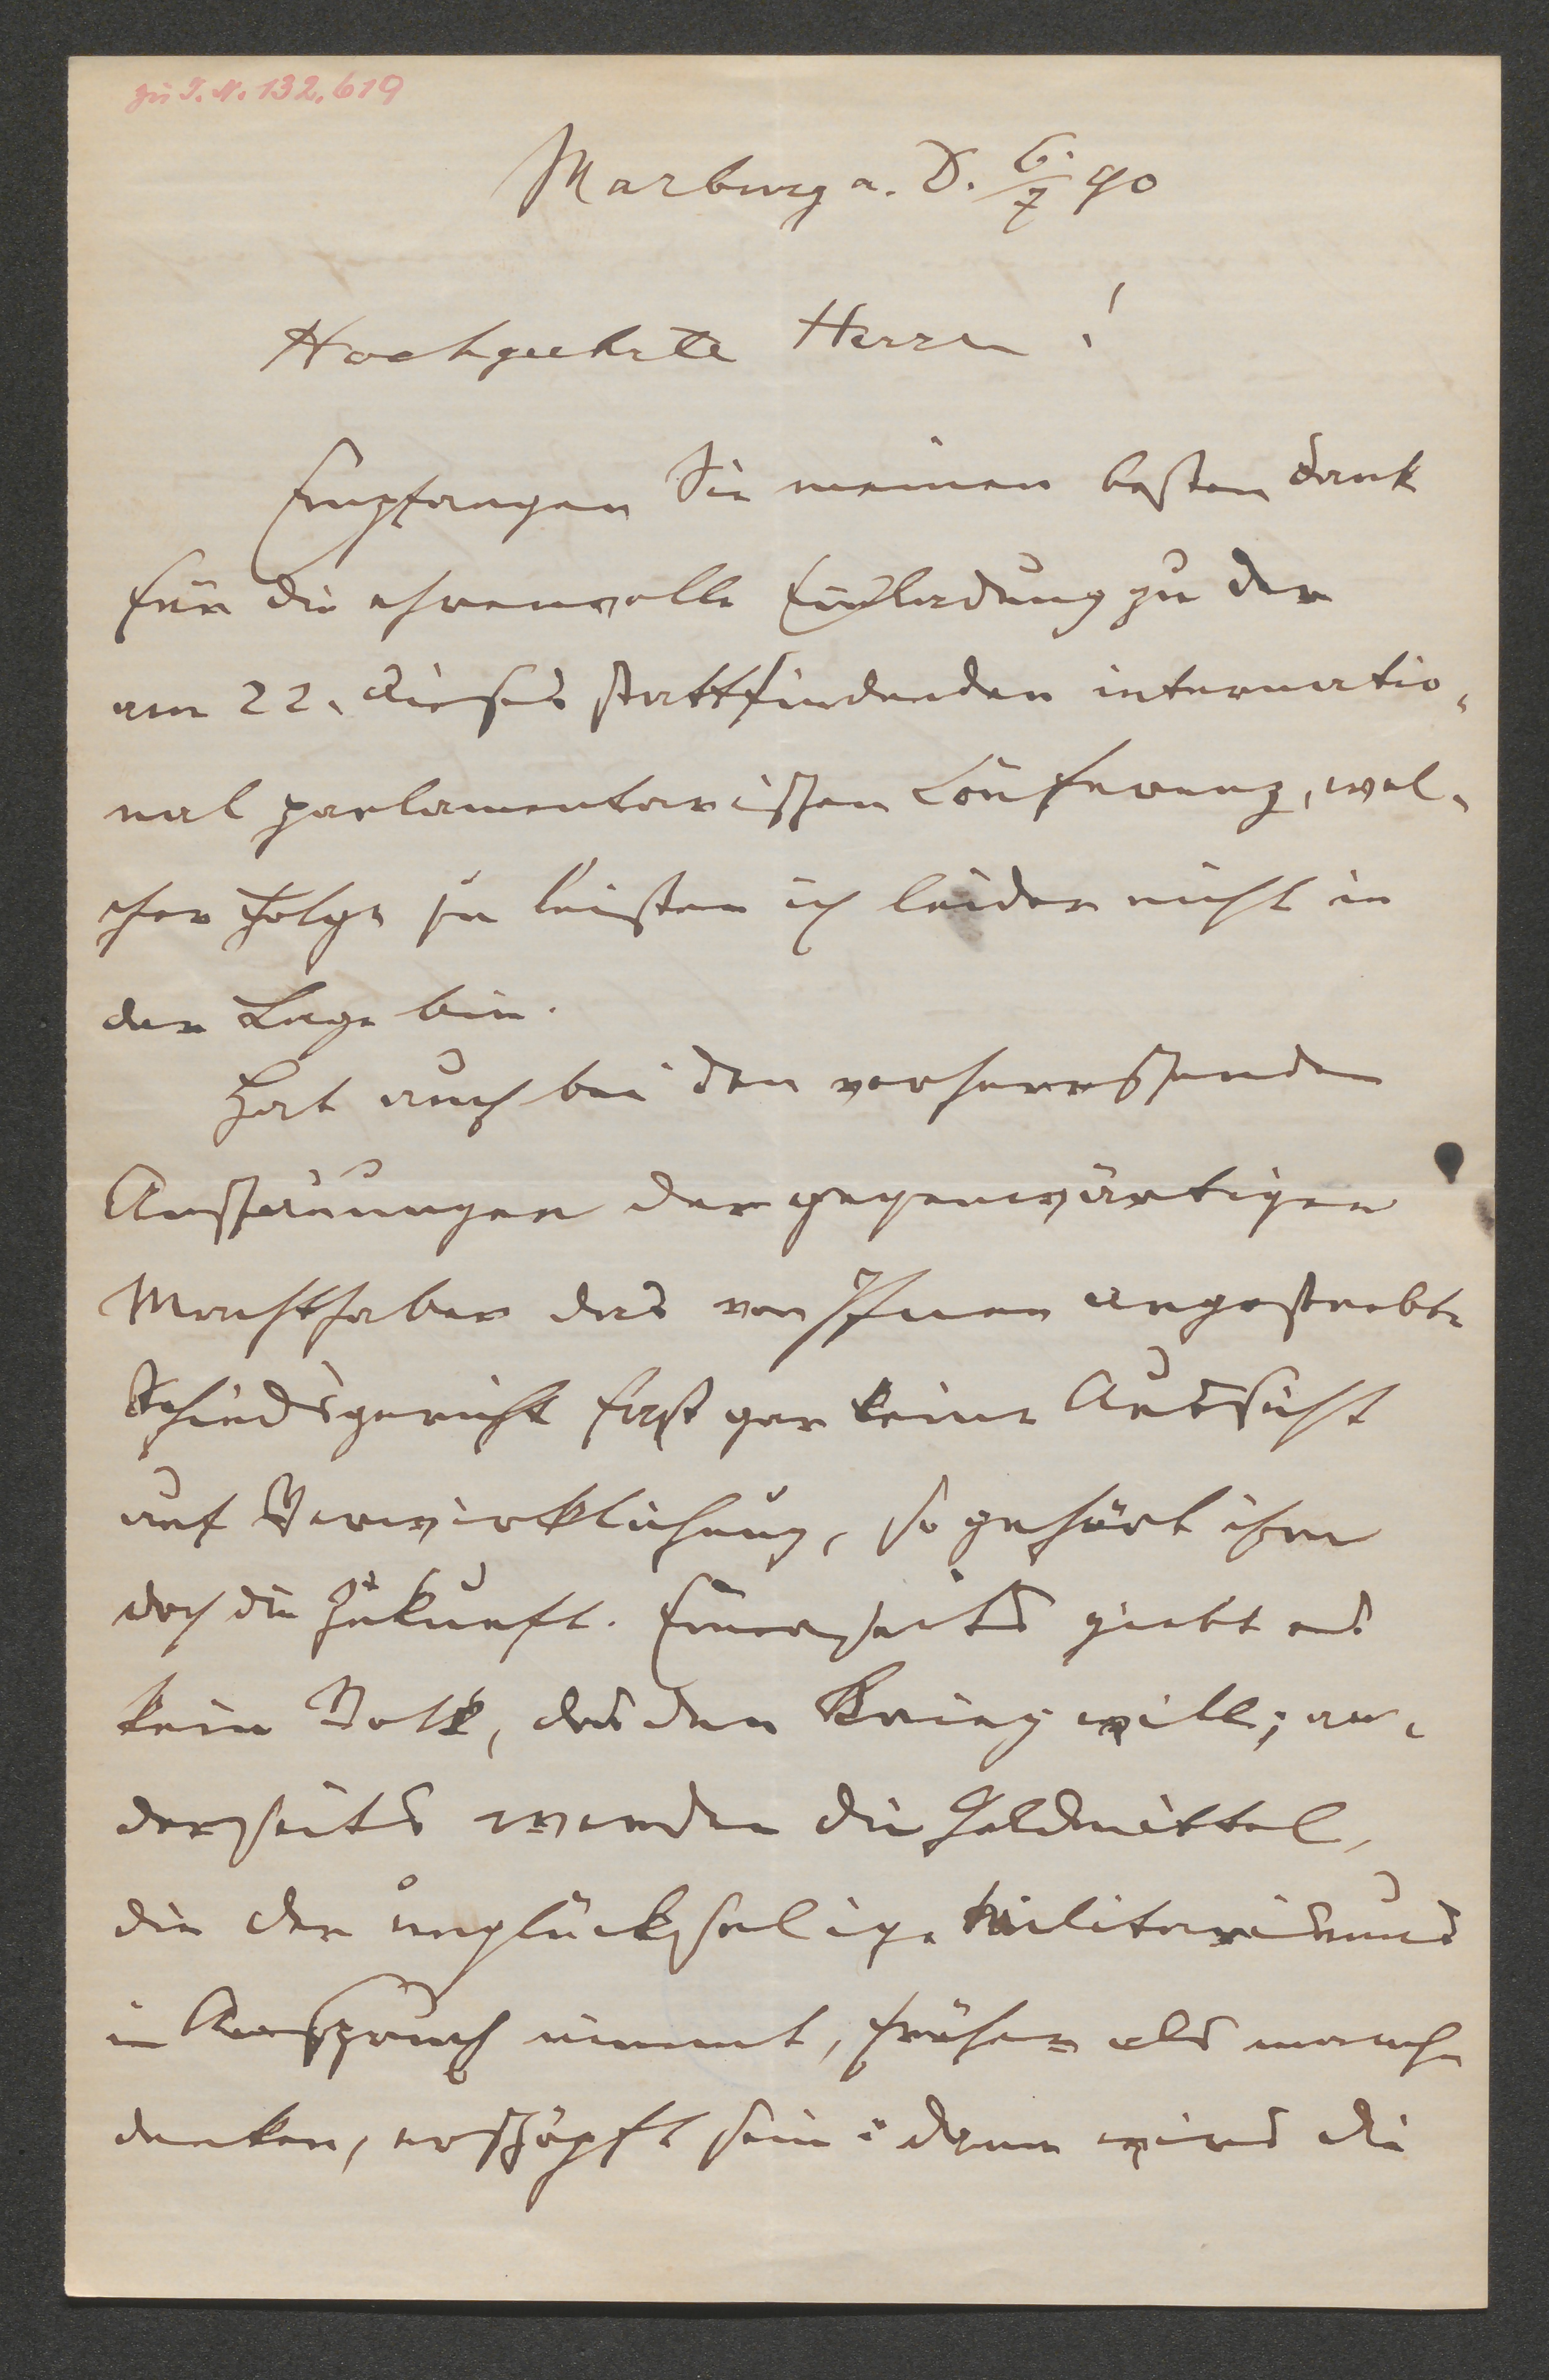 zu I.N. 132.619
Marburg a. D. 6./7 90
Hochgeehrte Herren!
Empfangen Sie meinen besten Dank
für die ehrenvolle Einladung zu der
am 22. dieses stattfindenden internatio-
nal parlamentarischen Conferenz, wel-
cher Folge zu leisten ich leider nicht in
der Lage bin.
Hat auch bei den vorherrschenden
Anschauungen der gegenwärtigen
Machthaber das von Ihnen angestrebte
Schiedsgericht fast gar keine Aussicht
auf Verwirklichung, so gehört ihm
doch die Zukunft. Einerseits giebt es
kein Volk, das den Krieg will; an-
derseits werden die Geldmittel,
die der unglückselige Militarismus
in Anspruch nimmt, früher als manche
denken, erschöpft sein: dann wird die